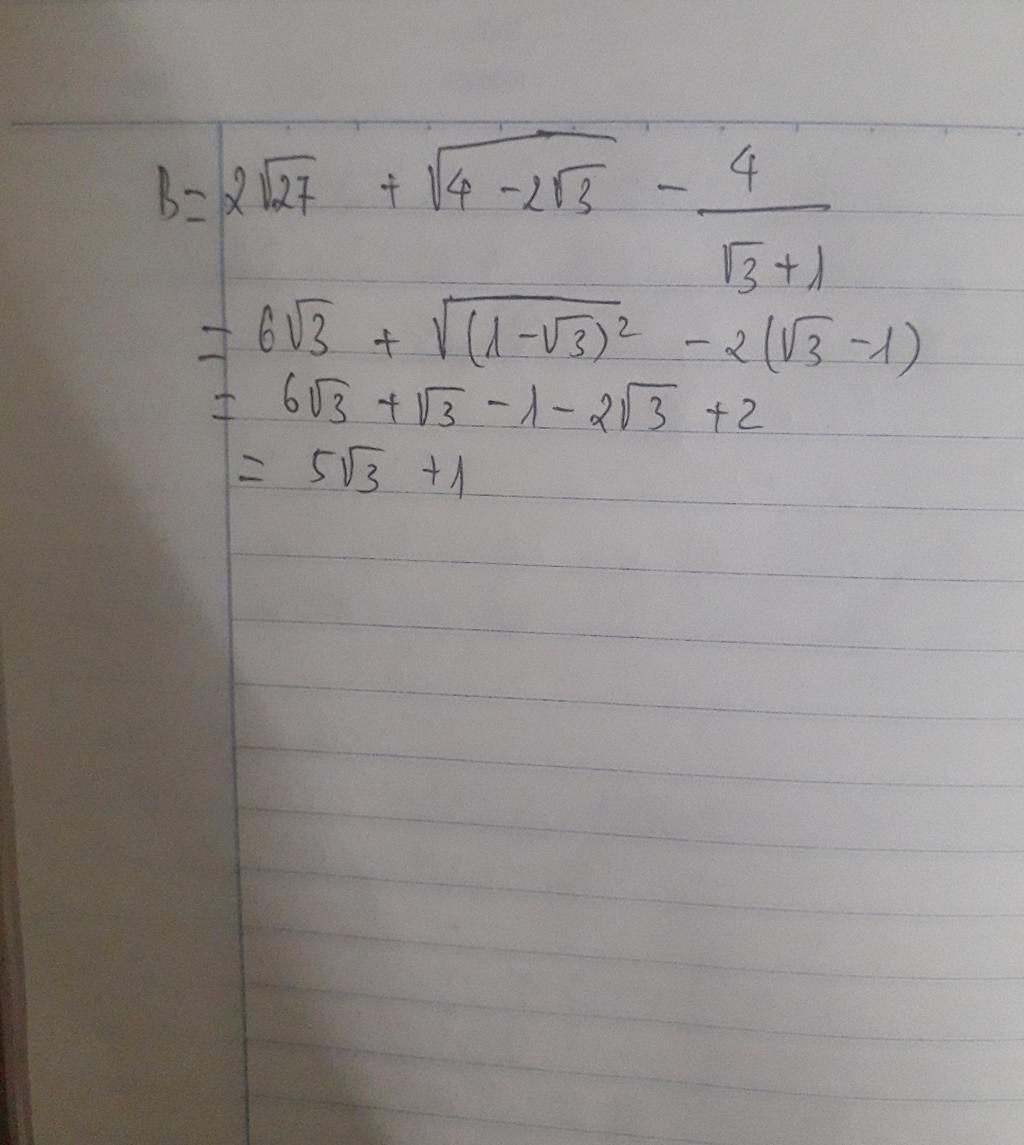 B = 2√27 + √(4 - 2√3) - 4/(√3 + 1)
= 6√3 + √((1 - √3)²) - 2(√3 - 1)
= 6√3 + √3 - 1 - 2√3 + 2
= 5√3 + 1